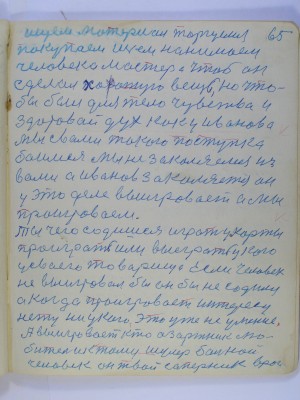 ищем материал торгуем 65
покупаем ищем нанимаем
человека мастера чтоб он
сделал хорошую вещь, но что-
бы был для тело чувства и
здоровай дух как у иванова
мы с вами такого поступка
боимся мы не закаляемся
вами а иванов закаляется он
у это деле выигроваеет а мы
проигроваем.
Ты чего садишся играть у карты
проиграть или выиграть у кого
у своего товарища если человек
не выигровал бы он бы не садился
а когда проигровает интересу
нету ни укого. Это уже не умение,
А выигровает кто азартник лю-
битель к тому шулер больной
человек он твой саперник враг